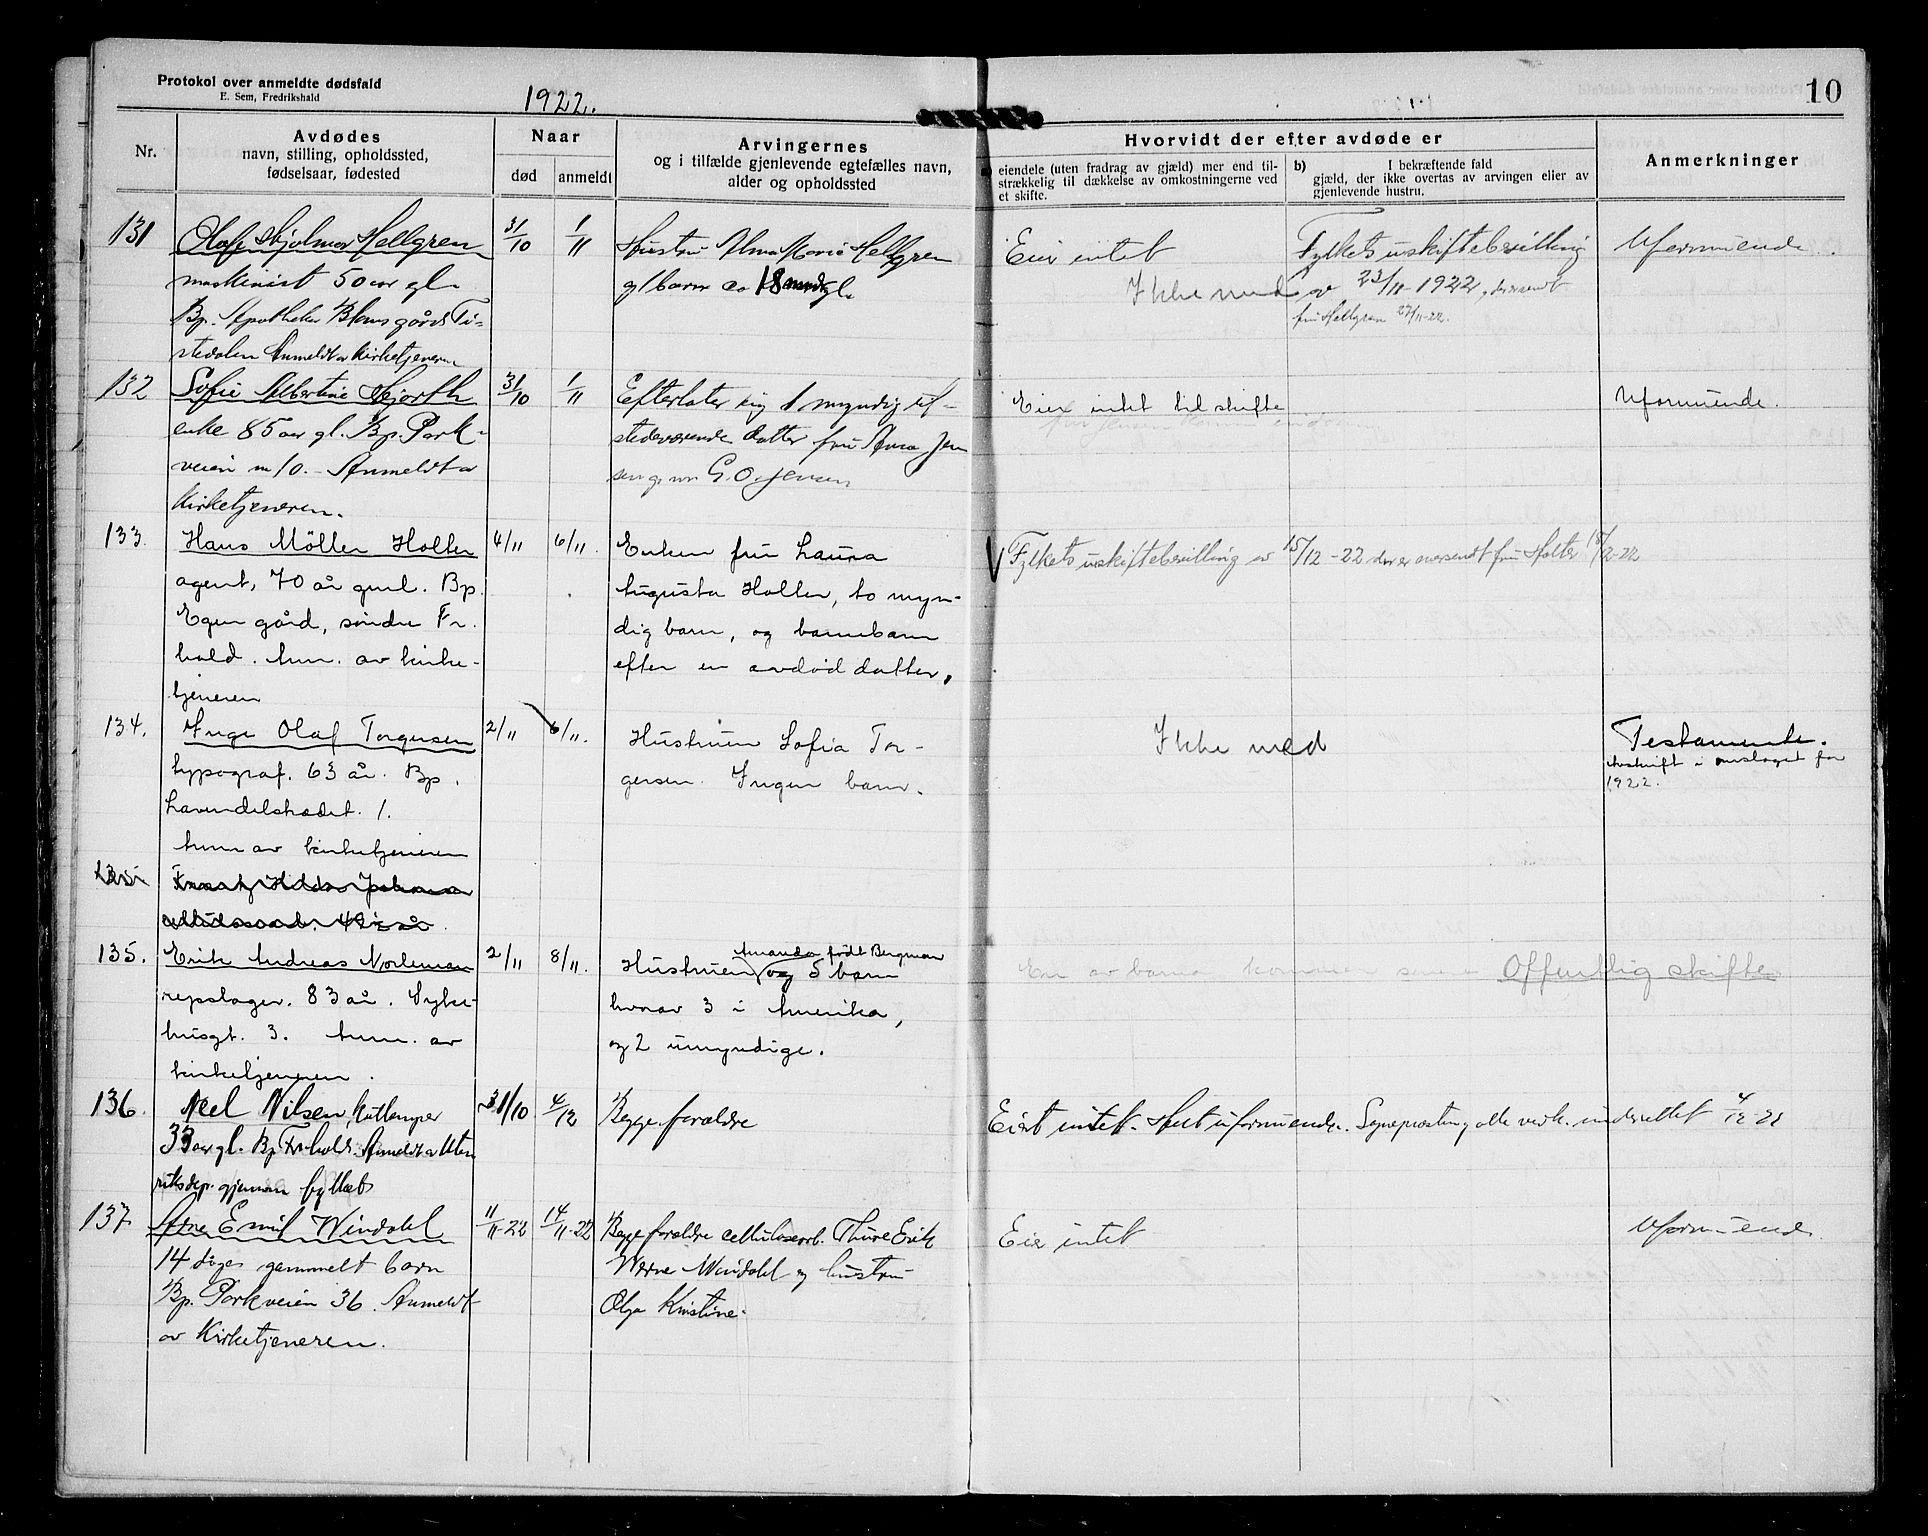 Protokol over anmeldte dødsfald
E. Sem, Fredrikshald
1922.
10
Nr.
Avdødes
navn, stilling, opholdssted,
fødselsaar, fødested
Naar
død
anmeldt
Arvingernes
og i tilfælde gjenlevende egtefælles navn,
alder og opholdssted
Hvorvidt der efter avdøde er
eiendele (uten fradrag av gjæld) mer end til-
strækkelig til dækkelse av omkostningerne ved
et skifte.
b) I bekræftende fald
gjæld, der ikke overtas av arvingen eller av
gjenlevende hustru.
Anmerkninger
131
Olaf Hjalmar Hellgren
maskinist 50 aar gl.
Bp. Apotheker Blaus gård Ti-
stedalen Anmeldt av kirketjeneren
31/10
1/11
Hustru Alma Marie Hellgren
Eier intet
Ikke med
Fylkets uskiftebevilling
av 23/11-1922,
fru Hellgren 27/11-22.
Uformuende
132
Sofie Albertine Hjorth
enke 85 aar gl. Bp. Park-
veien nr 10. - Anmeldt av
kirketjeneren.
31/10
1/11
Efterlater sig 1 myndig til-
stedeværende datter fru Anna Jen
sen g. m. G. O. Jensen
Eier intet til skifte
Uformuende.
133.
Hans Möller Holter
agent, 70 år gml. Bp.
Egen gård, søndre Fr.
hald. Anm. av kirke-
tjeneren
4/11
6/11.
Enken fru Laura
Augusta Holter, to myn-
dig barn, og barnebarn
efter en avdød datter.
Fylkets uskiftebevilling av 15/12-22 der er oversendt fru Holter 18/12-22
134.
Inge Olaf Torgersen
typograf. 63 år. Bp.
Lavendelstrædet. 1.
Anm av kirketjeneren
2/11
6/11.
Hustruen Sofia Tor-
gersen. Ingen barn.
Ikke med
Testamente.
Avskrift i omslaget for
1922.
135.
Erik Andreas Norleman
repslager. 83 år. Syke-
husgt. 3. Anm. av
kirketjeneren.
2/11
8/11.
Amanda født Bergman
Hustruen og 5 barn
hvorav 3 i Amerika,
og 2 umyndige.
En av barna kommer
Offentlig skifte
136.
Nilsen,
33 aar gl. Bp. Frhald. Anmeldt av Uten
riksdep. gjennem fylket
31/10
4/12
Begge forældre
Eiet intet. Helt uformuende. underrettet 4/12-22
137
Arne Emil Windahl
14 dages gammelt barn
Bp. Parkveien 36. Anmeldt
av Kirketjeneren.
11/11-22
14/11-22
Begge forældre cellulosearb. Thure Erik
Werne Windahl og hustru
Olga Kristine.
Eier intet
Uformuende